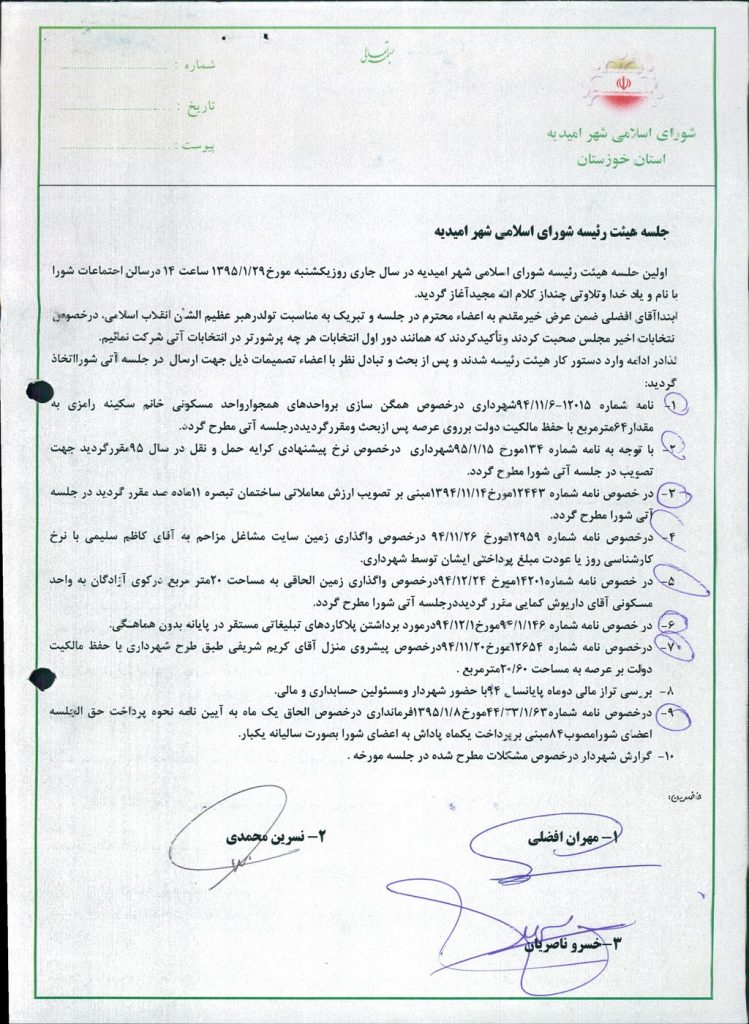 بسمه تعالی
شماره :
تاریخ :
پیوست :
شورای اسلامی شهر امیدیه
استان خوزستان
جلسه هیئت رئیسه شورای اسلامی شهر امیدیه
اولین جلسه هیئت رئیسه شورای اسلامی شهر امیدیه در سال جاری روزیکشنبه مورخ۱۳۹۵/۱/۲۹ ساعت ۱۴ درسالن اجتماعات شورا
با نام و یاد خدا وتلاوتی چنداز کلام الله مجیدآغاز گردید.
ابتداآقای افضلی ضمن عرض خیرمقدم به اعضاء محترم در جلسه و تبریک به مناسبت تولدرهبر عظیم الشأن انقلاب اسلامی، درخصوص
نتخابات اخیر مجلس صحبت کردند وتأکیدکردند که همانند دور اول انتخابات هر چه پرشورتر در انتخابات آتی شرکت نمائیم.
لذادر ادامه وارد دستور کار هیئت رئیسه شدند و پس از بحث و تبادل نظر با اعضاء تصمیمات ذیل جهت ارسال در جلسه آتی شورااتخاذ
گردید:
۱- نامه شماره ۱۲۰۱۵-۹۴/۱۱/۶شهرداری درخصوص همگن سازی برواحدهای همجوارواحد مسکونی خانم سکینه رامزی به
مقدار۶۴مترمربع با حفظ مالکیت دولت برروی عرصه پس ازبحث ومقررگردیددرجلسه آتی مطرح گردد.
۲- با توجه به نامه شماره ۱۳۴مورخ ۹۵/۱/۱۵شهرداری درخصوص نرخ پیشنهادی کرایه حمل و نقل در سال ۹۵مقررگردید جهت
تصویب در جلسه آتی شورا مطرح گردد.
۳- در خصوص نامه شماره ۱۲۴۴۳مورخ۱۳۹۴/۱۱/۱۴مبنی بر تصویب ارزش معاملاتی ساختمان تبصره ۱۱ماده صد مقرر گردید در جلسه
آتی شورا مطرح گردد.
۴- درخصوص نامه شماره ۱۲۹۵۹مورخ ۹۴/۱۱/۲۶ درخصوص واگذاری زمین سایت مشاغل مزاحم به آقای کاظم سلیمی با نرخ
کارشناسی روز یا عودت مبلغ پرداختی ایشان توسط شهرداری.
۵- در خصوص نامه شماره۱۴۲۰۱مورخ ۹۴/۱۲/۲۴درخصوص واگذاری زمین الحاقی به مساحت ۲۰متر مربع درکوی آزادگان به واحد
مسکونی آقای داریوش کمایی مقرر گردیددرجلسه آتی شورا مطرح گردد.
۶- در خصوص نامه شماره ۹۴/۱/۱۴۶مورخ۹۴/۱۲/۱درمورد برداشتن پلاکاردهای تبلیغاتی مستقر در پایانه بدون هماهنگی.
۷- درخصوص نامه شماره ۱۲۶۵۴مورخ۹۴/۱۱/۲۰درخصوص پیشروی منزل آقای کریم شریفی طبق طرح شهرداری با حفظ مالکیت
دولت بر عرصه به مساحت ۲۰/۶۰مترمربع .
۸- بررسی تراز مالی دوماه پایانسال ۹۴با حضور شهردار ومسئولین حسابداری و مالی.
۹- درخصوص نامه شماره۴۴/۳۳/۱/۶۳مورخ۱۳۹۵/۱/۸فرمانداری درخصوص الحاق یک ماه به آیین نامه نحوه پرداخت حق الجلسه
اعضای شورامصوب۸۴مبنی برپرداخت یکماه پاداش به اعضای شورا بصورت سالیانه یکبار.
۱۰- گزارش شهردار درخصوص مشکلات مطرح شده در جلسه مورخه .
حاضرین:
۱- مهران افضلی
۲- نسرین محمدی
۳-خسرو ناصریان